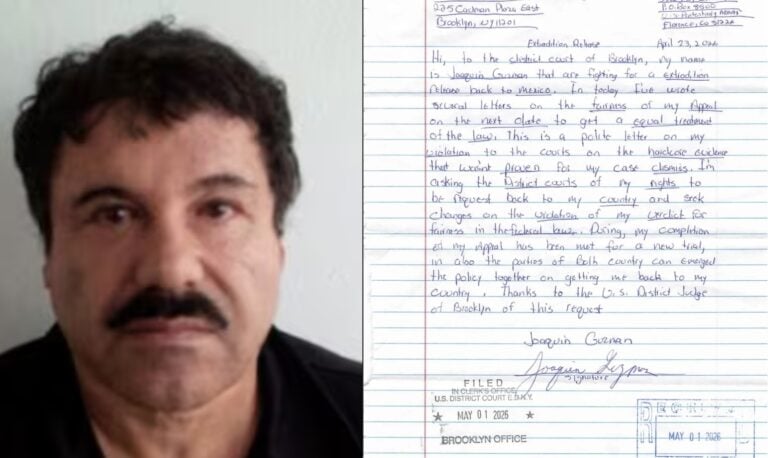 225 Cadman Plaza East
Brooklyn, NY 11201
P.O. Box 8500
Florence, CO 81226
Extradition Release
April 23, 2026
Hi, to the district court of Brooklyn, my name
is Joaquin Guzman that are fighting for a extradition
release back to mexico. In today I've wrote
several letters on the fairness of my Appeal
on the next date to get a equal treatment
of the law. This is a polite letter on my
violation to the courts on the hardcore evidence
that wasn't proven for my case dismiss. I'm
asking the District courts of my rights to
be request back to my country and seek
changes on the violation of my verdict for
fairness in the federal law. During, my completion
of my Appeal has been met for a new trial,
in also the parties of Both country can emerged
the policy together on getting me back to my
country. Thanks to the U.S. District Judge
of Brooklyn of this request
Joaquin Guzman
Joaquin Guzman
Signature
FILED
IN CLERK'S OFFICE
U.S. DISTRICT COURT E.D.N.Y.
★ MAY 01 2026 ★
BROOKLYN OFFICE
MAY 01 2026